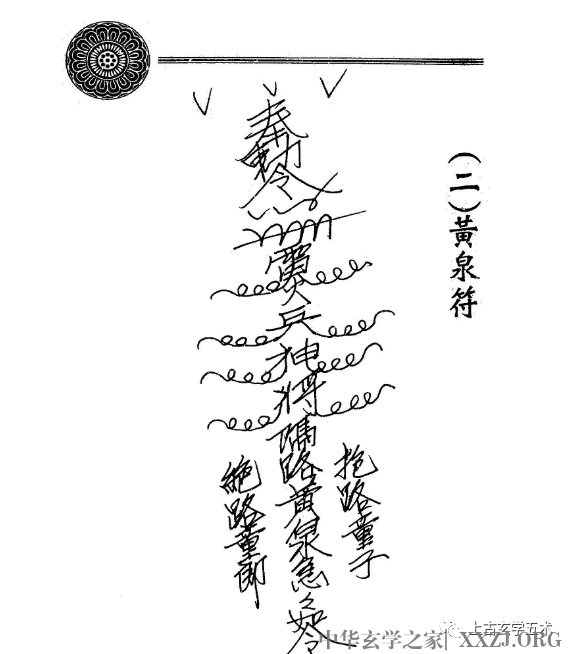 (二)黃泉符
抱路童子
奉勅令兵神將隔路黃泉急々如令
絶路童郎
上古玄学五术
中华玄学之家| XXZJ.ORG